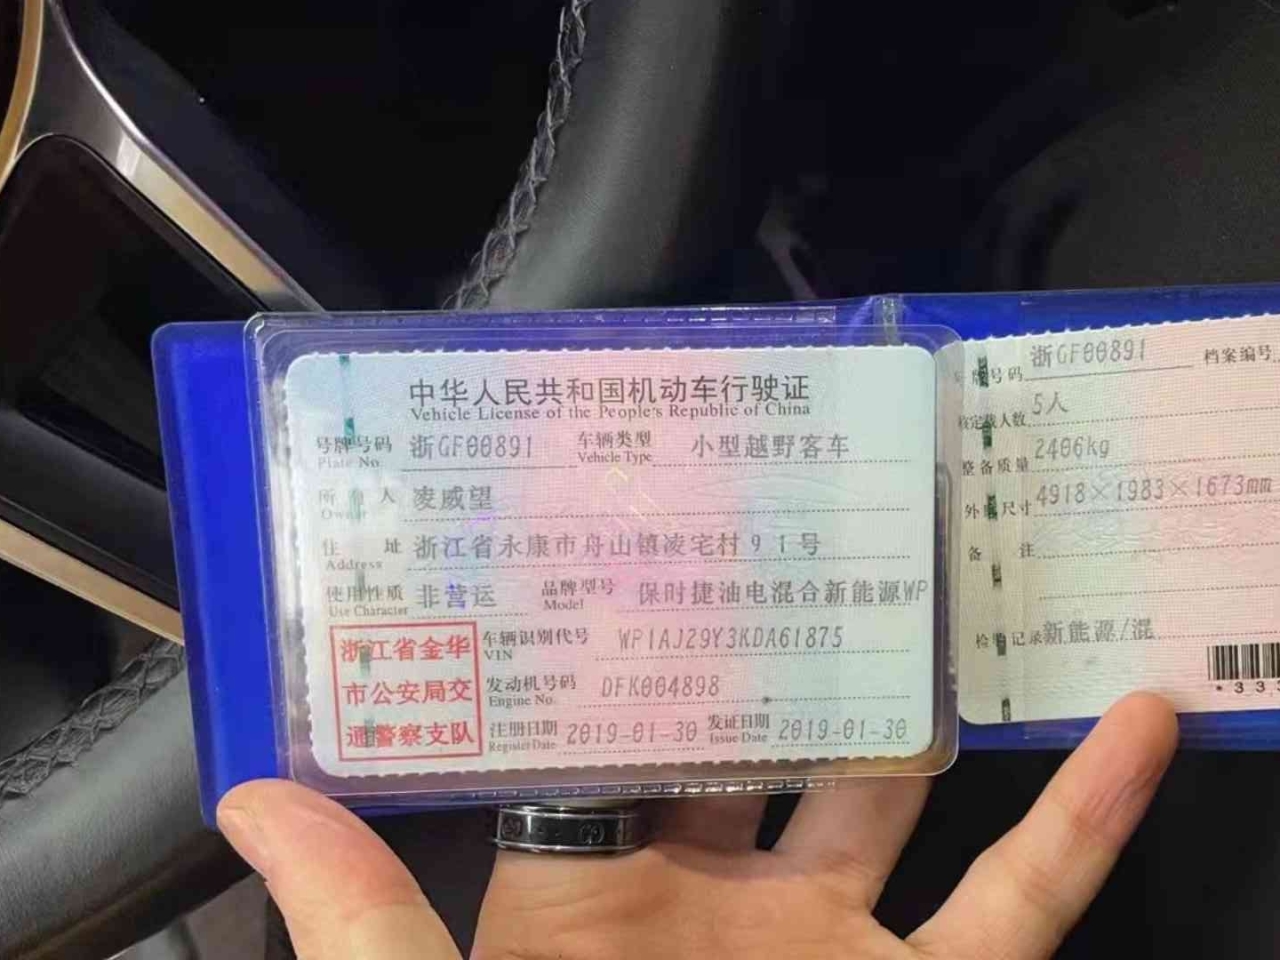 中华人民共和国机动车行驶证
Vehicle License of the People's Republic of China
号牌号码 浙GF00891 车辆类型 小型越野客车
Plate No. Vehicle Type
所有人 凌威望
Owner
住址 浙江省永康市舟山镇凌宅村91号
Address
使用性质 非营运 品牌型号 保时捷油电混合新能源WP
Use Character Model
浙江省金华
市公安局交
通警察支队
车辆识别代号 WP1AJ29Y3KDA61875
VIN
发动机号码 DFK004898
Engine No.
注册日期 2019-01-30 发证日期 2019-01-30
Register Date Issue Date
号牌号码 浙GF00891 档案编号
核定载人数 5人
整备质量 2406kg
外廓尺寸 4918×1983×1673mm
备注
检验记录 新能源/混
*33